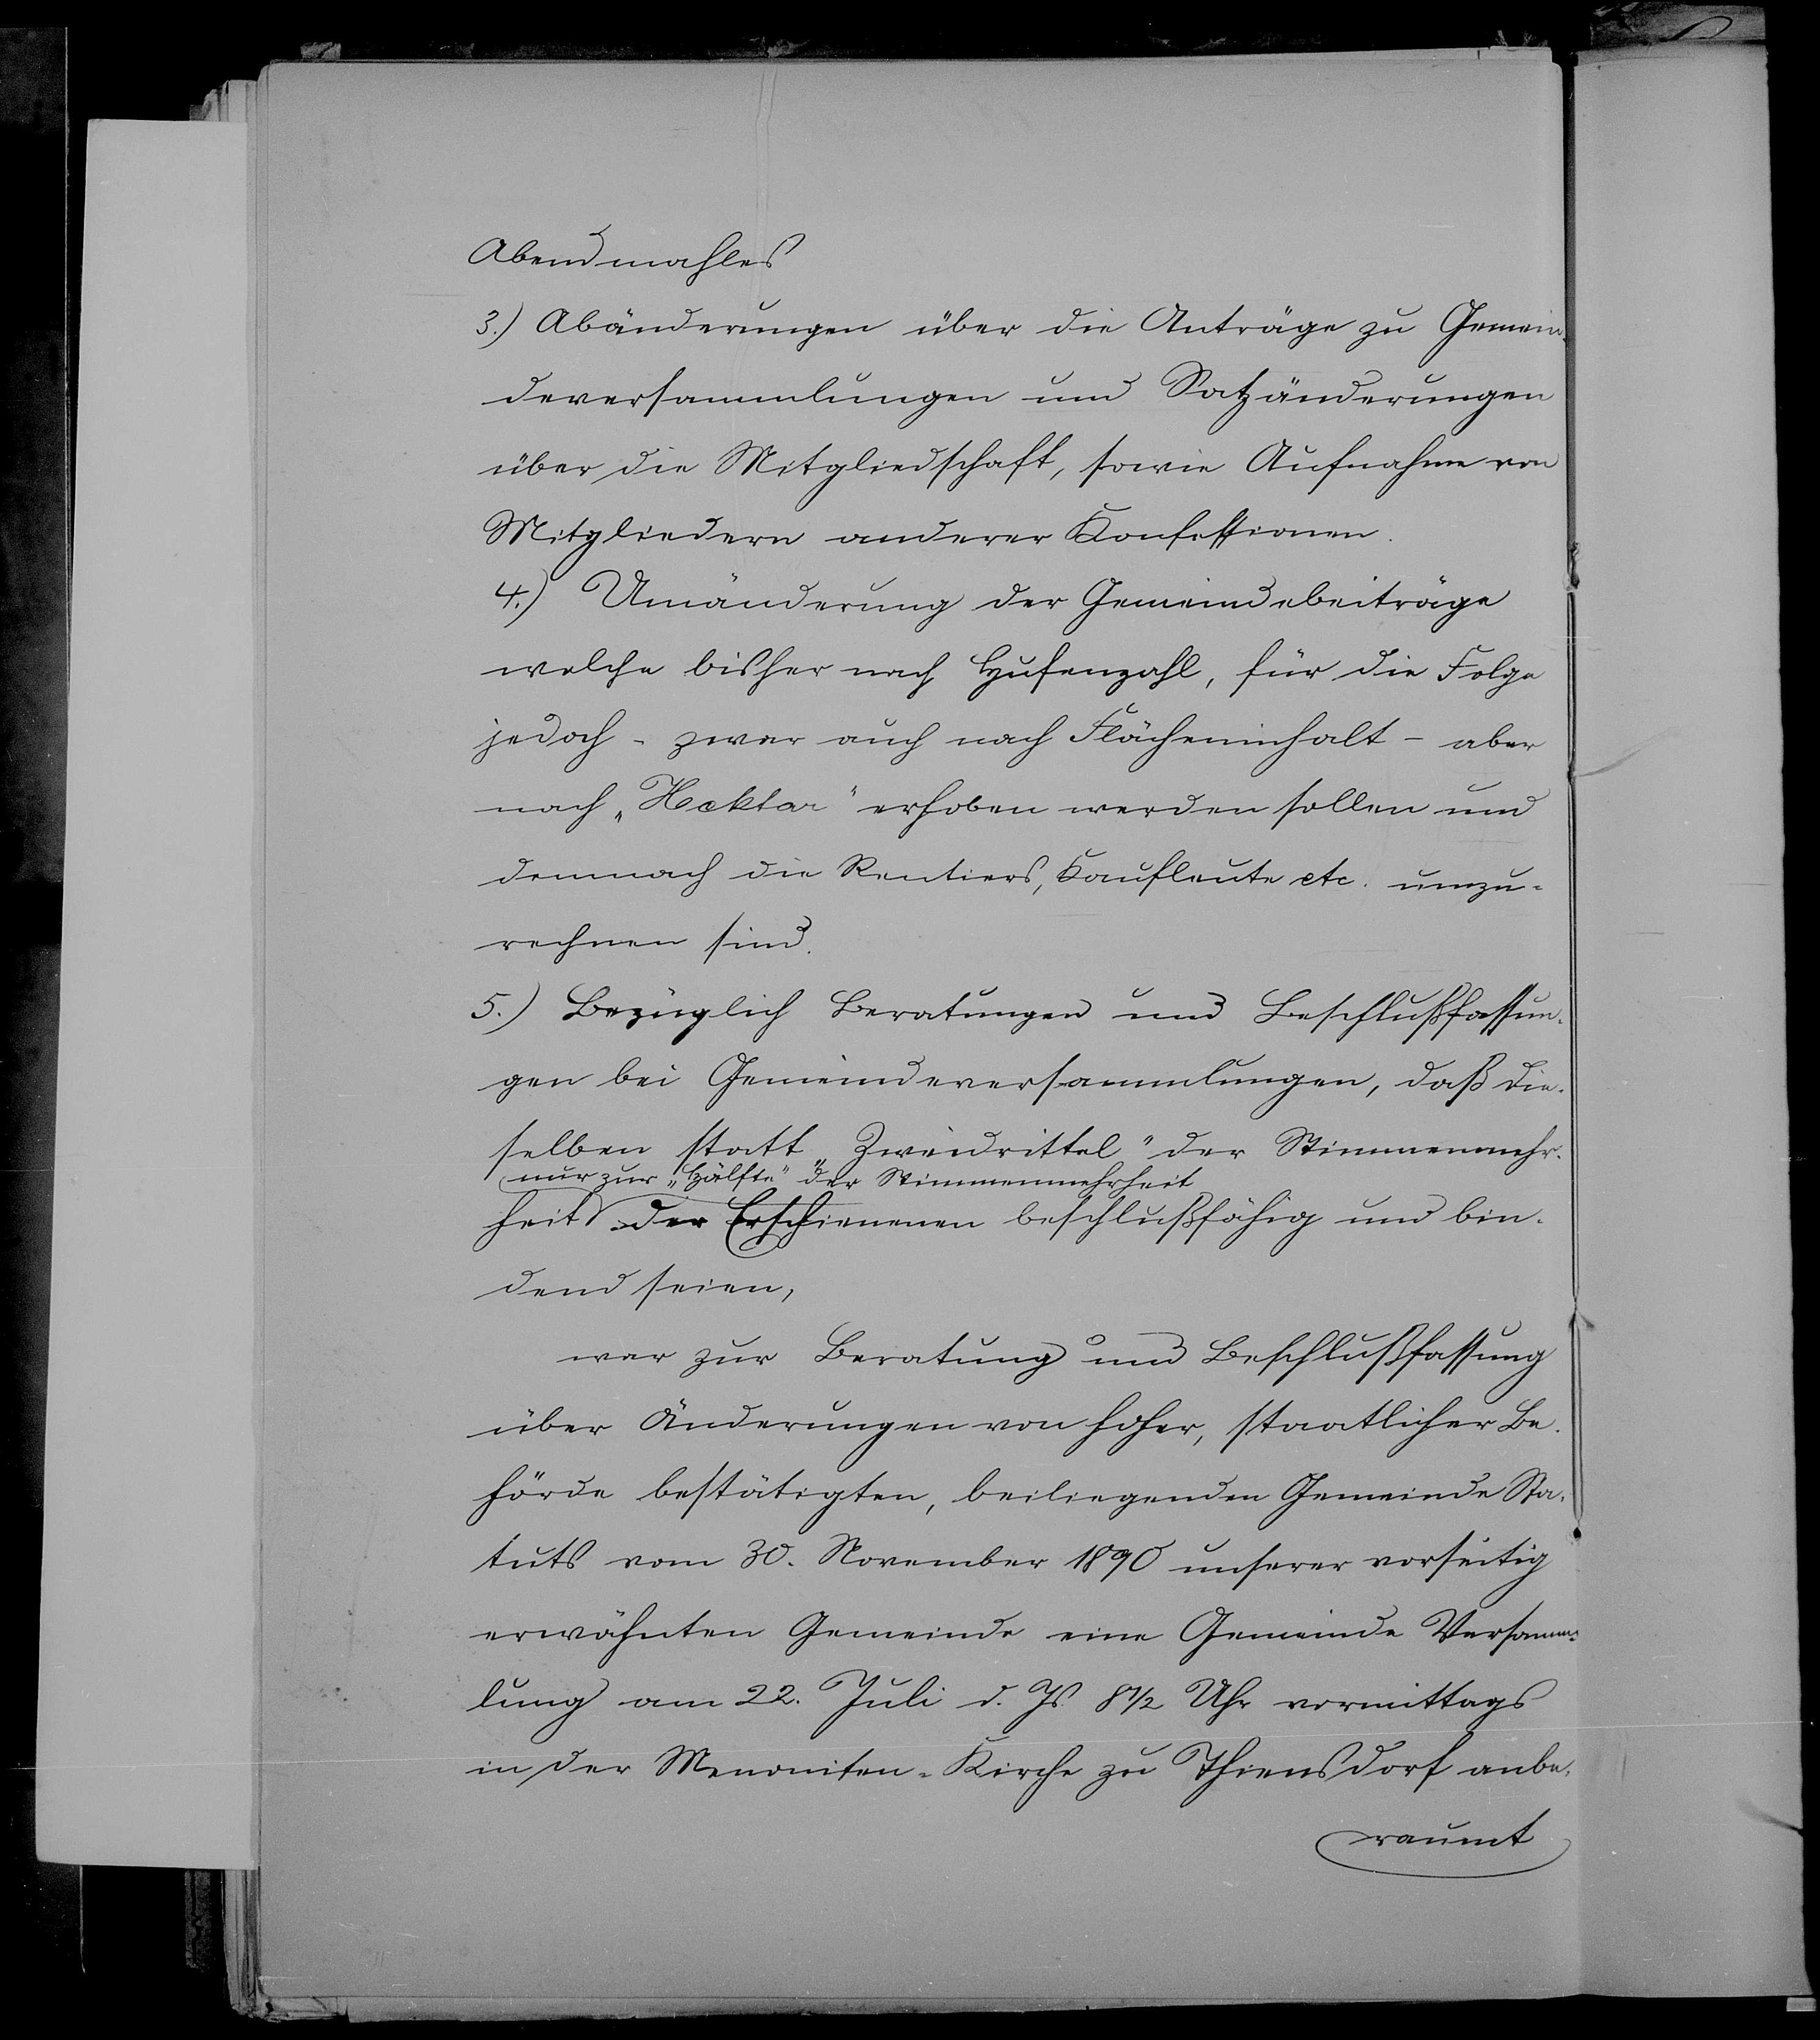 Abendmahles
3.) Abänderungen über die Anträge zu Gemein-
deversammlungen und Satzänderungen
über die Mitgliedschaft, sowie Aufnahme von
Mitgliedern anderer Konfessionen.
4.) Umänderung der Gemeindebeiträge
welche bisher nach Hufenzahl, für die Folge
jedoch - zwar auch nach Flächeninhalt - aber
nach "Hektar" erhoben werden sollen und
demnach die Rentiers, Kaufleute etc. umzu-
rechnen sind.
5.) Bezüglich Beratungen und Beschlußfassun-
gen bei Gemeindeversammlungen, daß die-
selben statt "Zweidrittel" der Stimmenmehr-
nur zur "Hälfte" der Stimmenmehrheit
heit der Erschienenen beschlußfähig und bin-
dend seien,
war zur Beratung und Beschlußfassung
über Änderungen von hoher, staatlicher Be-
hörde bestätigten, beiliegenden Gemeinde Sta-
tuts vom 30. November 1890 unserer vorseitig
erwähnten Gemeinde eine Gemeinde Versamm-
lung am 22. Juli d. Js. 8 1/2 Uhr vormittags
in der Menoniten-Kirche zu Thiensdorf anbe-
raumt